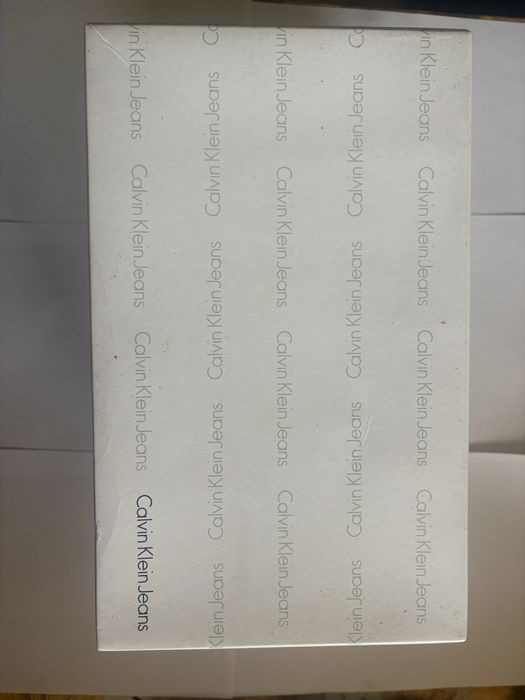 vin Klein Jeans Calvin Klein Jeans Calvin Klein Jeans Calvin Klein Jeans
Klein Jeans Calvin Klein Jeans Calvin Klein Jeans Calvin Klein Jeans Ca
vin Klein Jeans Calvin Klein Jeans Calvin Klein Jeans Calvin Klein Jeans
Klein Jeans Calvin Klein Jeans Calvin Klein Jeans Calvin Klein Jeans Ca
vin Klein Jeans Calvin Klein Jeans Calvin Klein Jeans Calvin Klein Jeans